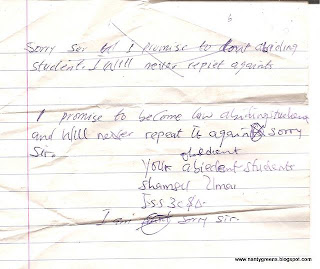 Sorry Sir I promise to dont abiding
student. I Will never repiet againts
I promise to become law abiding student
and Will never repeat it again sorry
Sir.
obedient
Your abiedent students
Shamsu Umar
Jss 3c
I am sorry sir.
www.nantygreens.blogspot.com